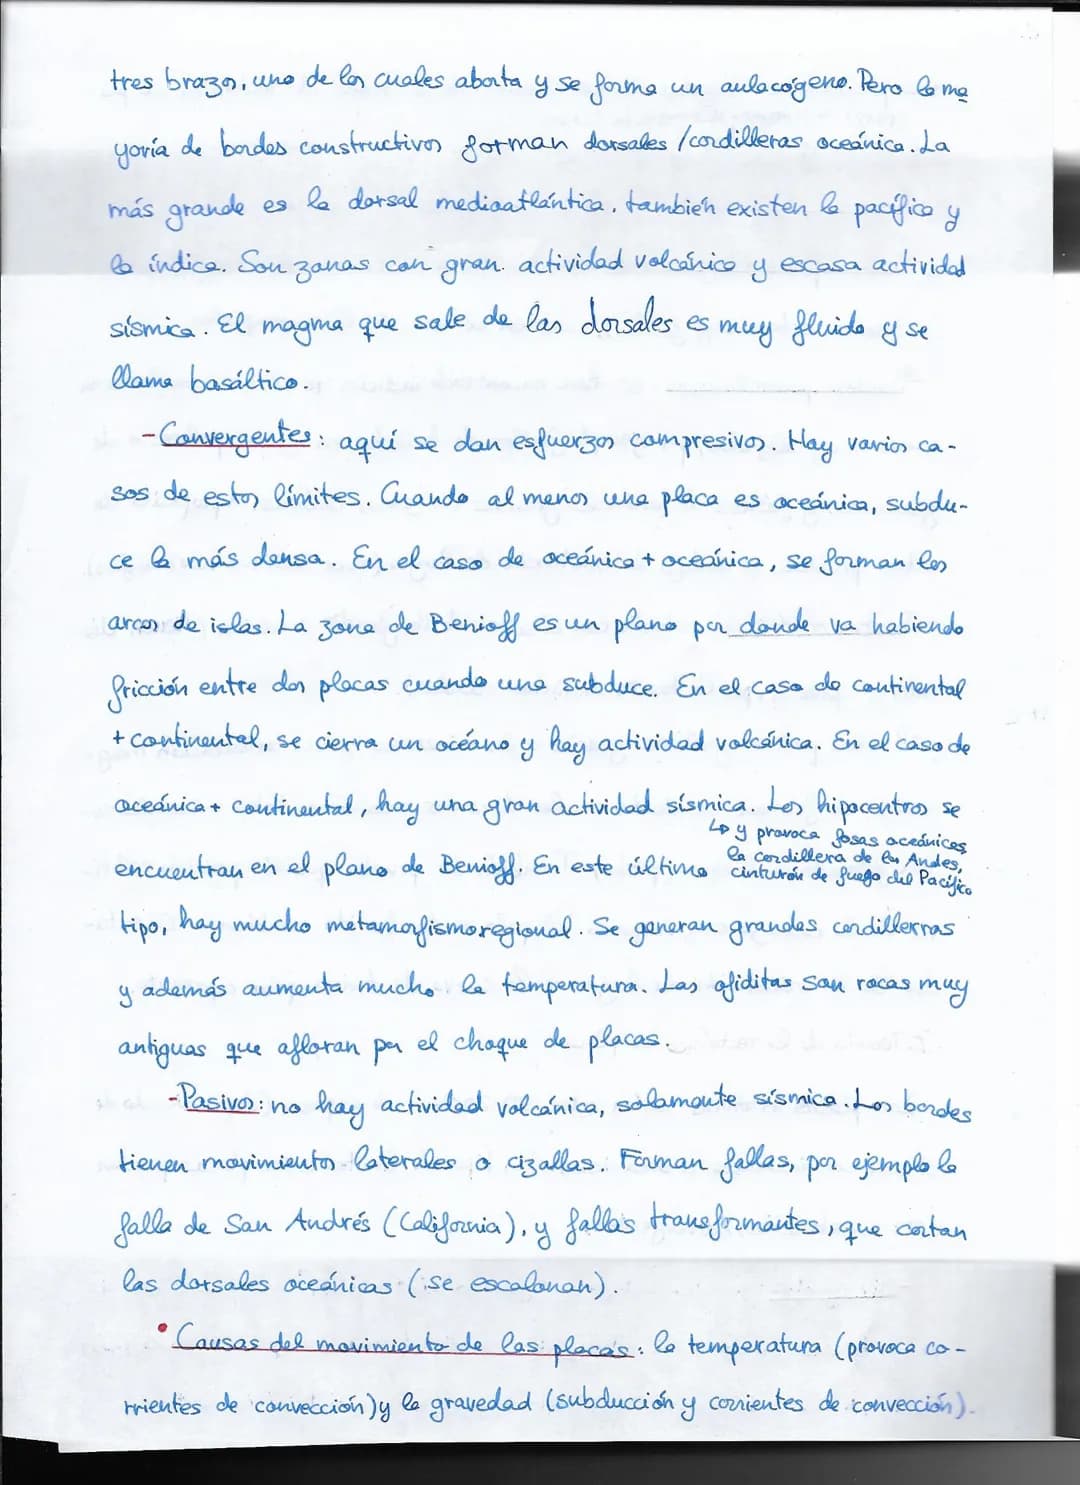 tres brazos, uno de los cuales aborta y se forma un aulacógeno. Pero la ma
yoría de bordes constructivos forman dorsales /cordilleras oceánica. La
más grande es la dorsal medioatlántica, también existen la pacífica y
la índica. Son zonas con gran actividad volcánica y escasa actividad
sísmica. El magma que sale de las dorsales es muy fluido y se
llama basáltico.
- Convergentes: aquí se dan esfuerzos compresivos. Hay varios ca-
sos de estos límites. Cuando al menos una placa es oceánica, subdu-
ce la más densa. En el caso de oceánica + oceánica, se forman los
arcos de islas. La zona de Benioff es un plano por donde va habiendo
fricción entre dos placas cuando una subduce. En el caso de continental
+ continental, se cierra un océano y hay actividad volcánica. En el caso de
oceánica + continental, hay una gran actividad sísmica. Los hipocentros se
↳ y provoca fosas oceánicas,
la cordillera de los Andes,
cinturón de fuego del Pacífico
encuentran en el plano de Benioff. En este último
tipo, hay mucho metamorfismo regional. Se generan grandes cordillerras
y además aumenta mucho la temperatura. Las ofiditas son rocas muy
antiguas que afloran por el choque de placas.
- Pasivos: no hay actividad volcánica, solamente sísmica. Los bordes
tienen movimientos laterales o cizallas. Forman fallas, por ejemplo la
falla de San Andrés (California), y fallas transformantes, que cortan
las dorsales oceánicas (se escalonan).
• Causas del movimiento de las placas: la temperatura (provoca co-
rrientes de convección) y la gravedad (subducción y corrientes de convección).